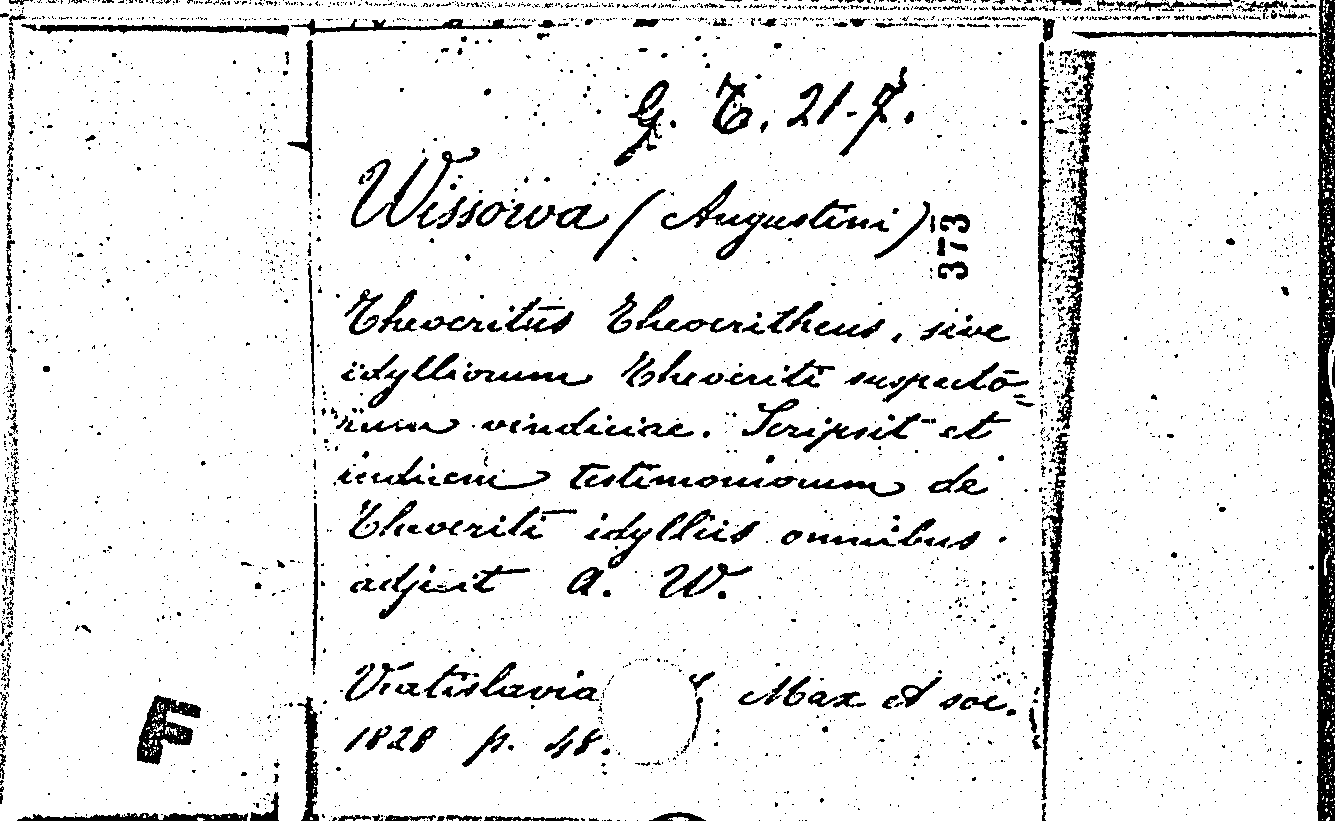 G. T. 21.7.
Wissowa (Augustini)
373
Theocritus Theocritheus, sive
idylliorum Theocriti suspecto=
rum vindiciae. Scripsit et
indicem testimoniorum de
Theocriti idylliis omnibus
adjecit A. W.
Vratislavia Max et soc.
1828 p. 48.
F